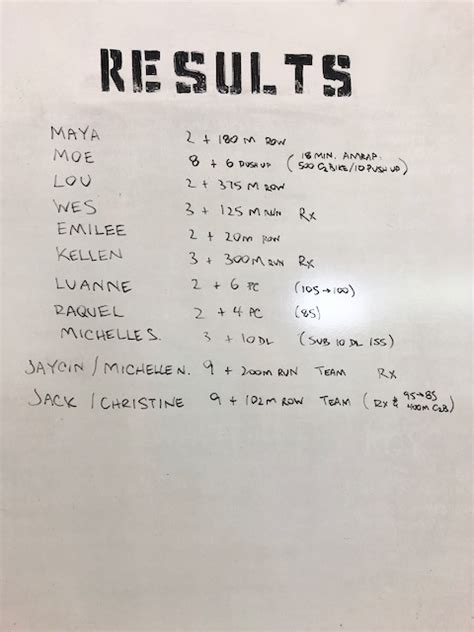 RESULTS
MAYA 2 + 180 M ROW
MOE 8 + 6 PUSH UP (18 MIN. AMRAP: 500 C2 BIKE/10 PUSH UP)
LOU 2 + 375 M ROW
WES 3 + 125 M RUN RX
EMILEE 2 + 20M ROW
KELLEN 3 + 300M RUN RX
LUANNE 2 + 6 PC (105→100)
RAQUEL 2 + 4 PC (85)
MICHELLE S. 3 + 10 DL (SUB 10 DL 155)
JAYCIN / MICHELLE N. 9 + 200M RUN TEAM RX
JACK / CHRISTINE 9 + 102M ROW TEAM (RX & 95→85 400M C2B)